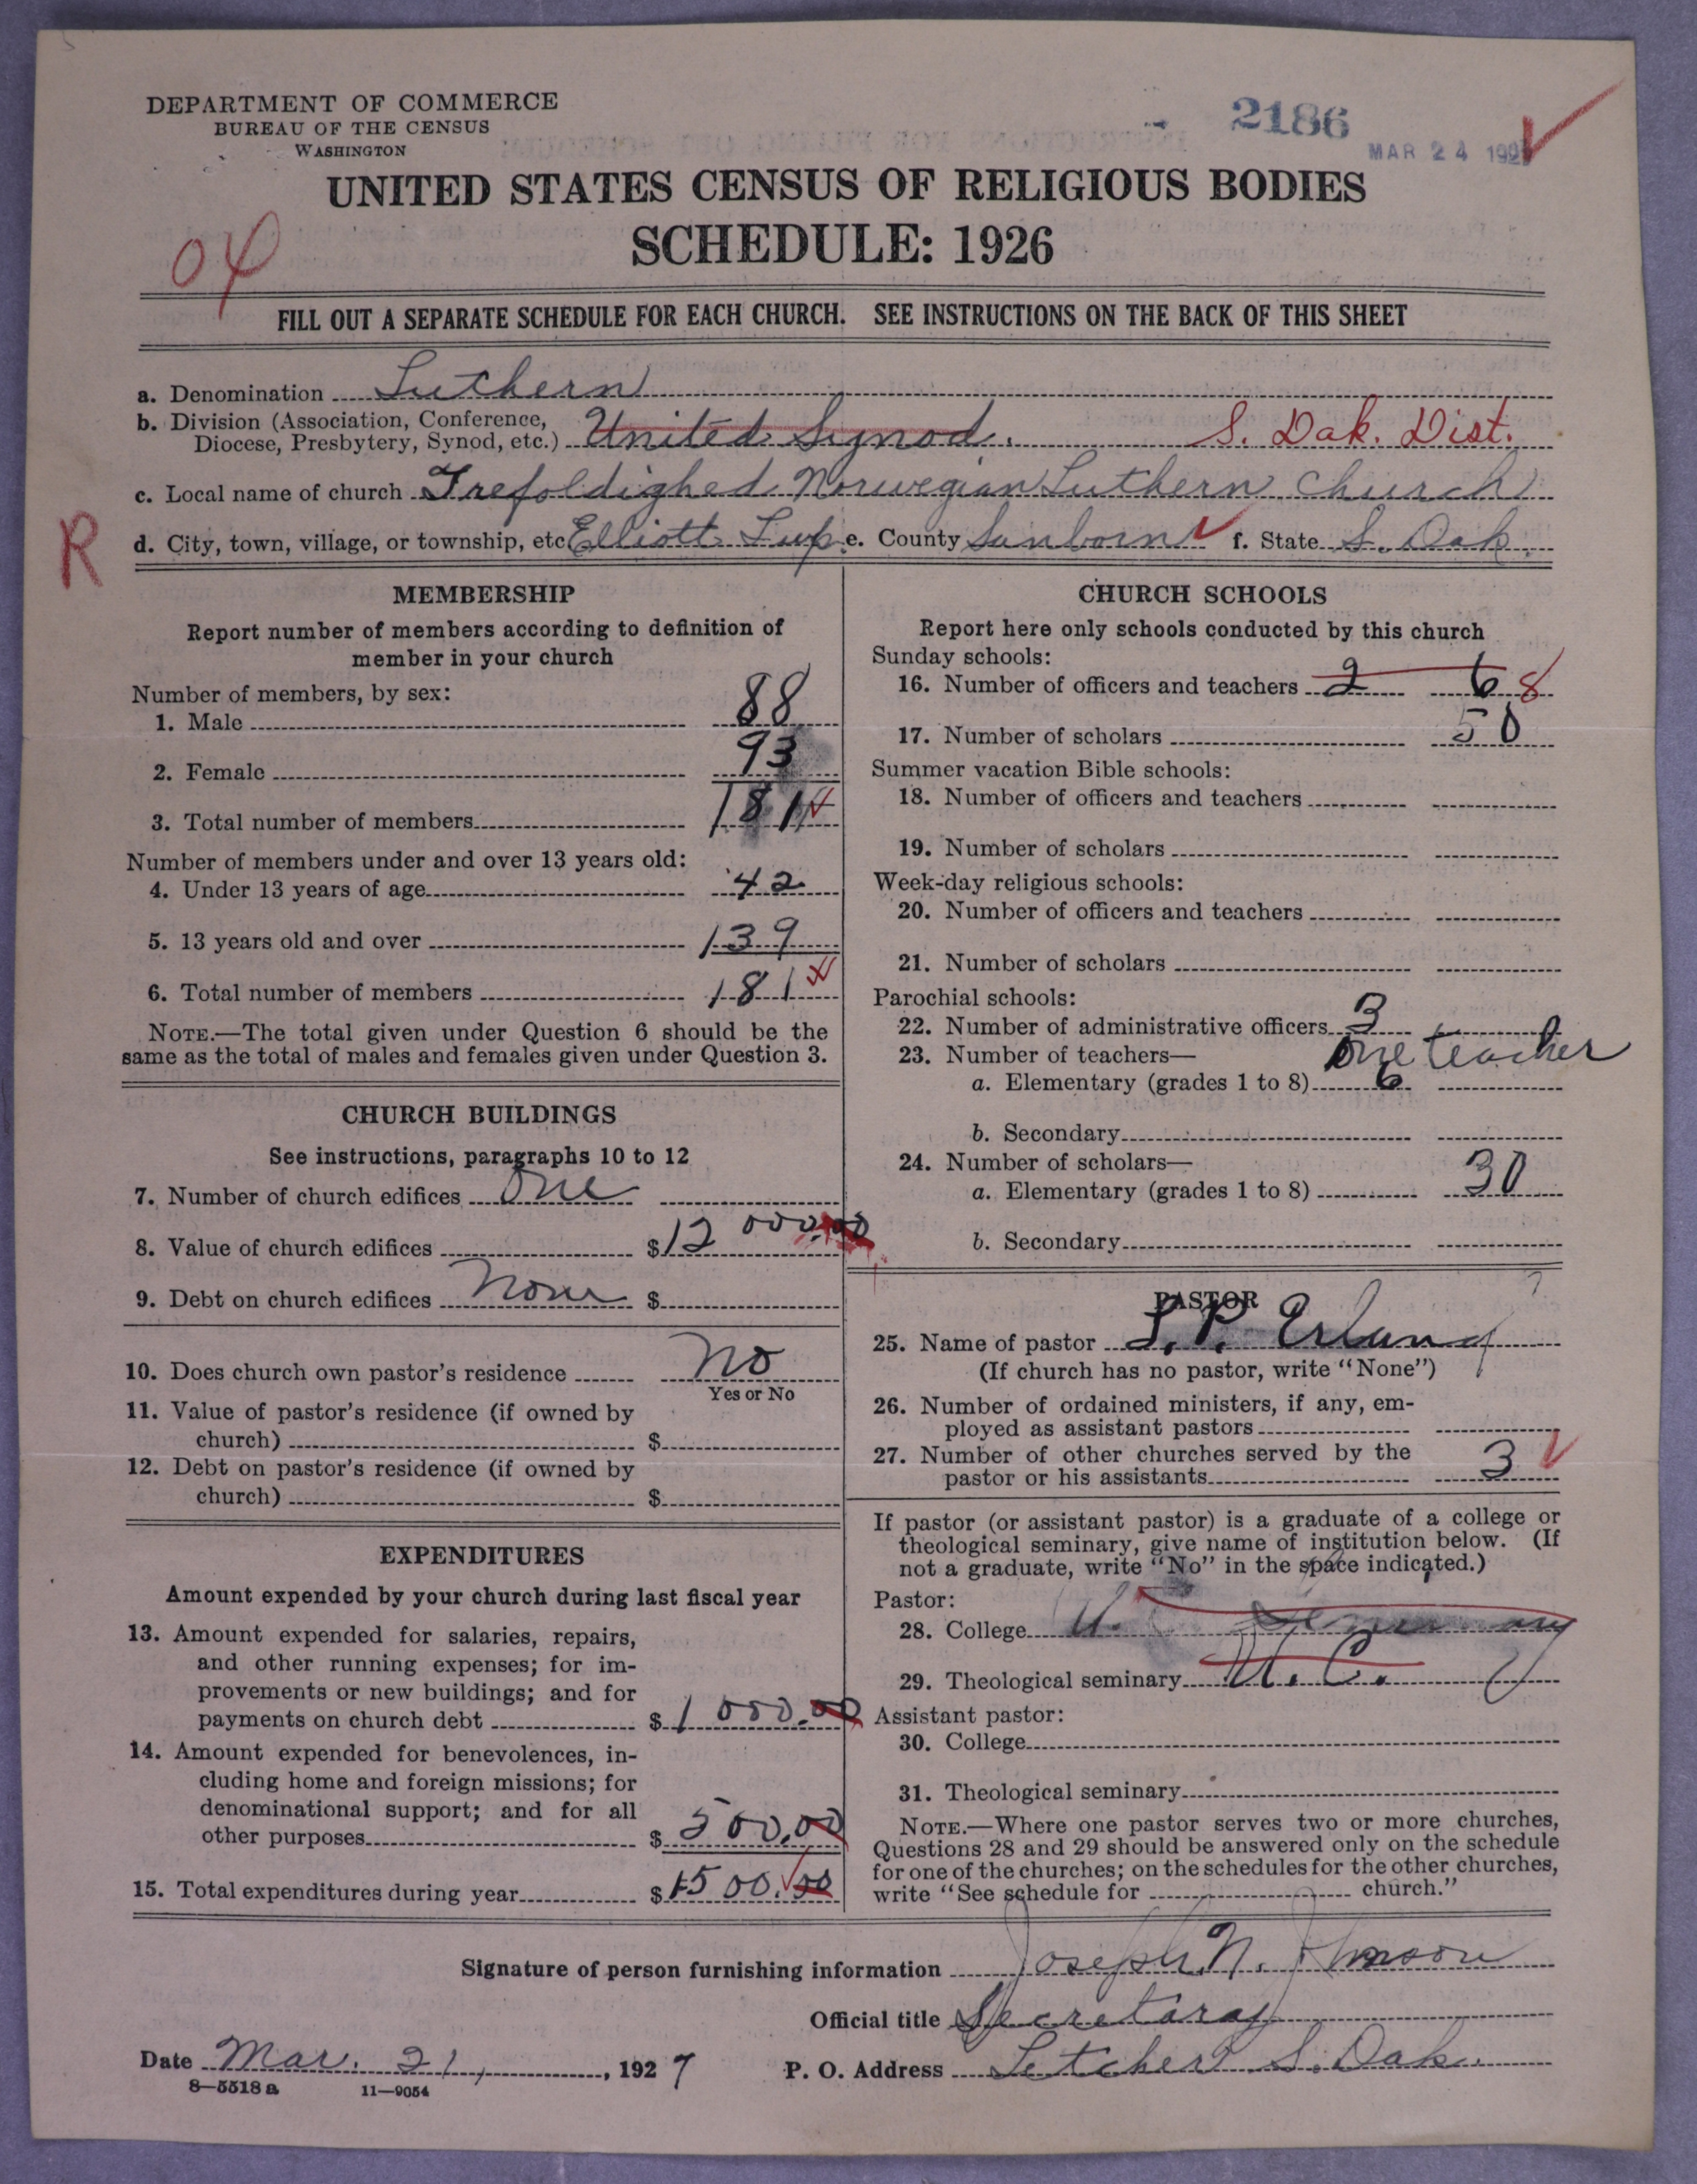 DEPARTMENT OF COMMERCE
BUREAU OF THE CENSUS
WASHINGTON
2186
MAR 24 192
UNITED STATES CENSUS OF RELIGIOUS BODIES
SCHEDULE: 1926
04
FILL OUT A SEPARATE SCHEDULE FOR EACH CHURCH. SEE INSTRUCTIONS ON THE BACK OF THIS SHEET
a. Denomination Luthern
b. Division (Association, Conference,
Diocese, Presbytery, Synod, etc.) United Synod. S. Dak. Dist.
c. Local name of church Trefoldighed Norwegian Luthern Church
R
d. City, town, village, or township, etc Elliott Twp. e. County Sanborn f. State S. Dak.
MEMBERSHIP
Report number of members according to definition of
member in your church
Number of members, by sex:
1. Male 88
2. Female 93
3. Total number of members 181
Number of members under and over 13 years old:
4. Under 13 years of age 42
5. 13 years old and over 139
6. Total number of members 181
NOTE.—The total given under Question 6 should be the
same as the total of males and females given under Question 3.
CHURCH BUILDINGS
See instructions, paragraphs 10 to 12
7. Number of church edifices One
8. Value of church edifices $12 000.00
9. Debt on church edifices None $
10. Does church own pastor's residence No
Yes or No
11. Value of pastor's residence (if owned by
church) $
12. Debt on pastor's residence (if owned by
church) $
EXPENDITURES
Amount expended by your church during last fiscal year
13. Amount expended for salaries, repairs,
and other running expenses; for im-
provements or new buildings; and for
payments on church debt $1 000.00
14. Amount expended for benevolences, in-
cluding home and foreign missions; for
denominational support; and for all
other purposes $500.00
15. Total expenditures during year $1500.00
CHURCH SCHOOLS
Report here only schools conducted by this church
Sunday schools:
16. Number of officers and teachers 2 6 8
17. Number of scholars 50
Summer vacation Bible schools:
18. Number of officers and teachers
19. Number of scholars
Week-day religious schools:
20. Number of officers and teachers
21. Number of scholars
Parochial schools:
22. Number of administrative officers 3
23. Number of teachers— One teacher
a. Elementary (grades 1 to 8) 6
b. Secondary
24. Number of scholars—
a. Elementary (grades 1 to 8) 30
b. Secondary
PASTOR
25. Name of pastor L. P. Erland
(If church has no pastor, write "None")
26. Number of ordained ministers, if any, em-
ployed as assistant pastors
27. Number of other churches served by the
pastor or his assistants 3
If pastor (or assistant pastor) is a graduate of a college or
theological seminary, give name of institution below. (If
not a graduate, write "No" in the space indicated.)
Pastor:
28. College U.
29. Theological seminary U. C.
Assistant pastor:
30. College
31. Theological seminary
NOTE.—Where one pastor serves two or more churches,
Questions 28 and 29 should be answered only on the schedule
for one of the churches; on the schedules for the other churches,
write "See schedule for church."
Signature of person furnishing information Joseph N. Johnson
Official title Secretaray
Date Mar. 21, 1927 P. O. Address Letcher S. Dak.
8—5518 a 11—9054